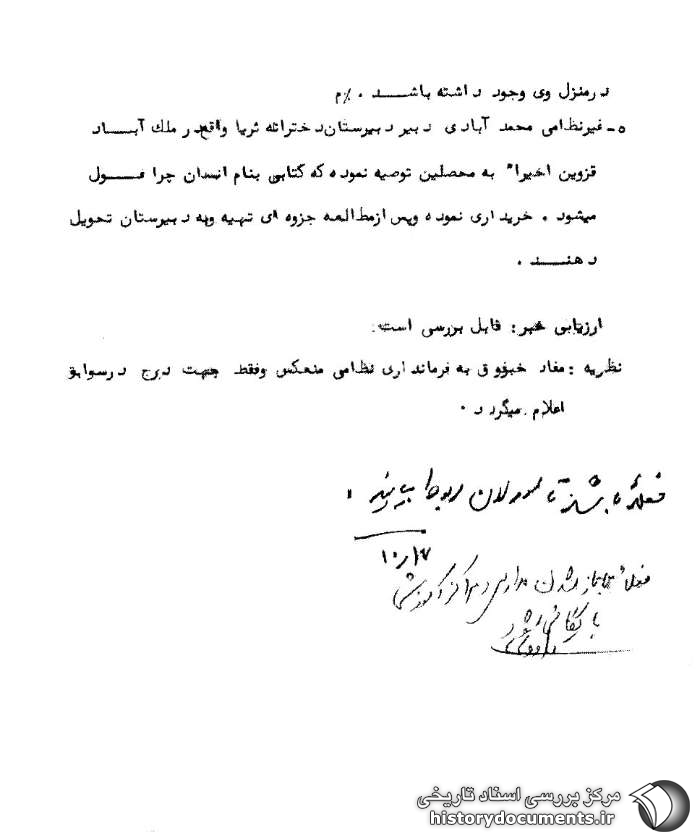 درمنزل وی وجود داشته باشد . %م
۵- غیرنظامی محمد آبادی دبیر دبیرستان دخترانه ثریا واقع در ملك آباد
قزوین اخیراً به محصلین توصیه نموده که کتابی بنام انسان چرا
میشود . خریداری نموده وپس ازمطالعه جزوه ای تهیه وبه دبیرستان تحویل
دهند .
ارزیابی خبر: قابل بررسی است.
نظریه : مفاد خبرفوق به فرمانداری نظامی منعکس وفقط جهت درج درسوابق
اعلام میگردد .
فعلاً باشد تا
۱۰/۱۷
فعلاً تا باز شدن مدارس و مراکز آموزشی
بایگانی شود
مرکز بررسی اسناد تاریخی
historydocuments.ir